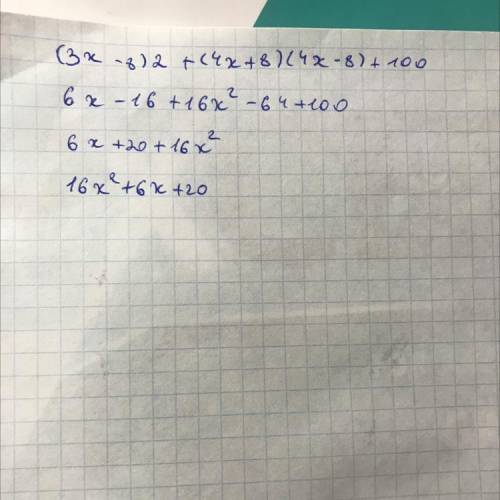 (3x - 8)2 + (4x + 8)(4x - 8) + 100
6x - 16 + 16x² - 64 + 100
6x + 20 + 16x²
16x² + 6x + 20